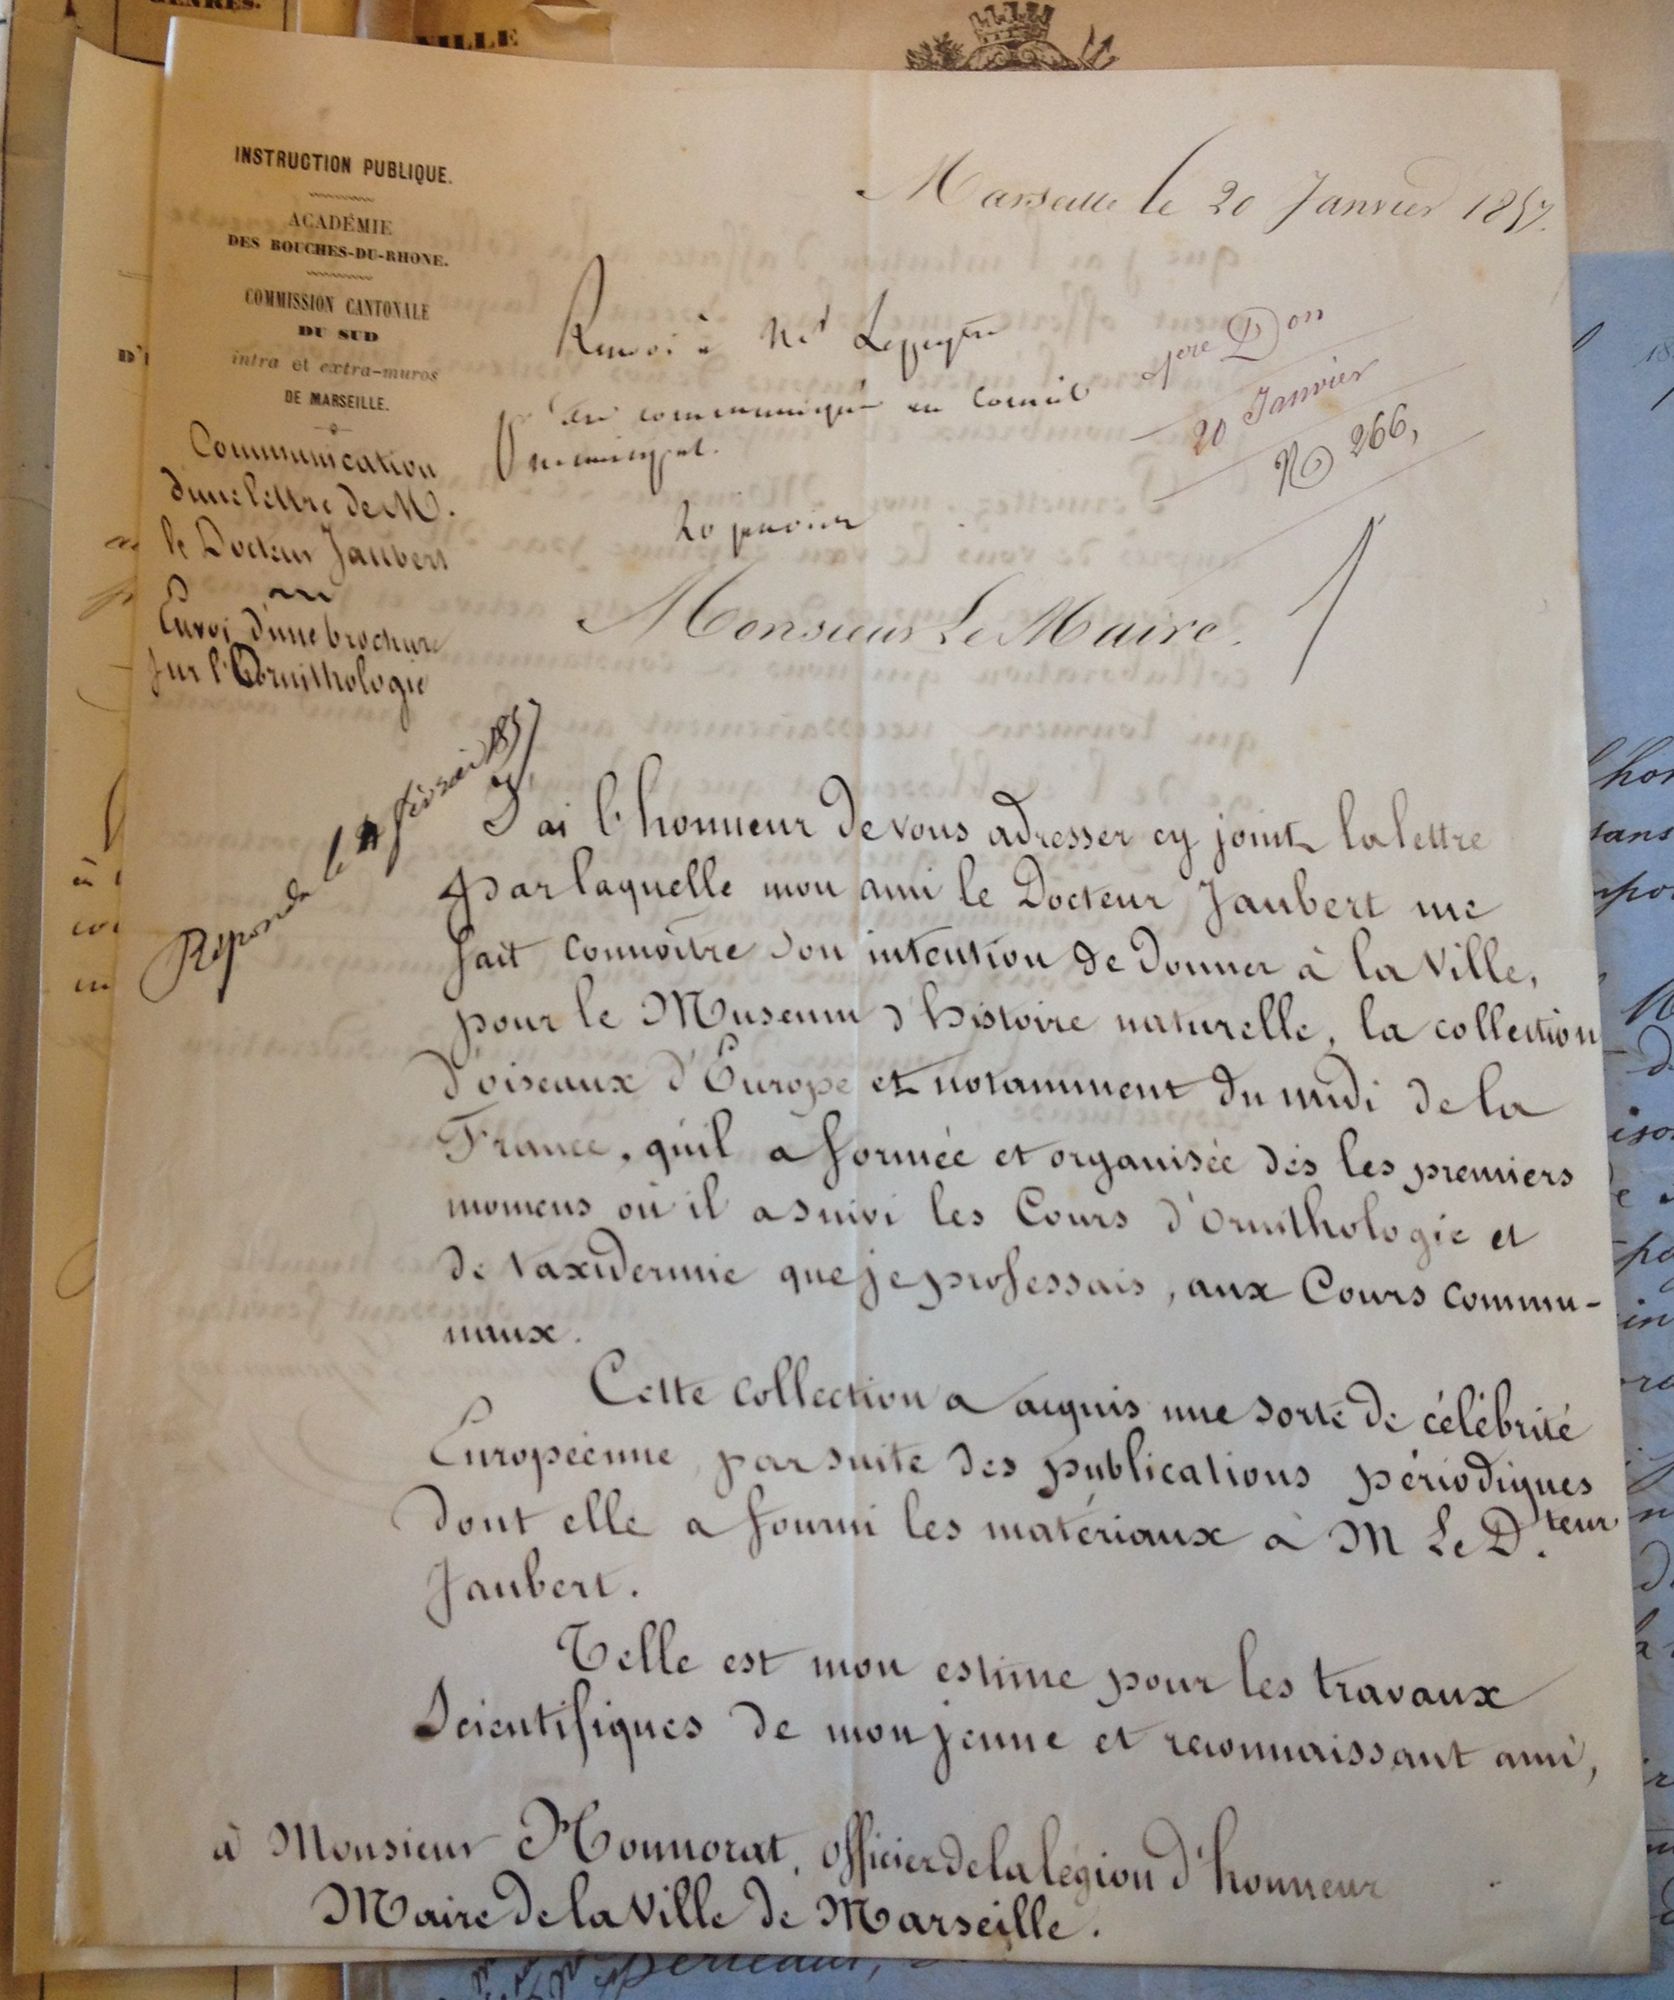 INSTRUCTION PUBLIQUE.
ACADÉMIE
DES BOUCHES-DU-RHONE.
COMMISSION CANTONALE
DU SUD
intra et extra-muros
DE MARSEILLE.
Communication
d'une lettre de M.
le Docteur Jaubert
Envoi d'une brochure
sur l'Ornithologie
Marseille le 20 Janvier 1857.
Renvoi à Mr
communiqué au Conseil
municipal.
20 janvier
1ere Don
20 Janvier
No 266,
Monsieur Le Maire.
Répondu le 4 février 1857
J'ai l'honneur de vous adresser cy joint la lettre
par laquelle mon ami le Docteur Jaubert me
fait connoître son intention de donner à la Ville,
pour le Museum d'histoire naturelle, la collection
d'oiseaux d'Europe et notamment du midi de la
France, qu'il a formée et organisée dès les premiers
momens où il a suivi les Cours d'Ornithologie et
de taxidermie que je professais, aux Cours commu-
naux.
Cette collection a acquis une sorte de célébrité
Européenne, par suite des publications périodiques
dont elle a fourni les matériaux à M Le D.teur
Jaubert.
Telle est mon estime pour les travaux
Scientifiques de mon jeune et reconnaissant ami,
à Monsieur Honnorat, officier de la légion d'honneur
Maire de la Ville de Marseille.